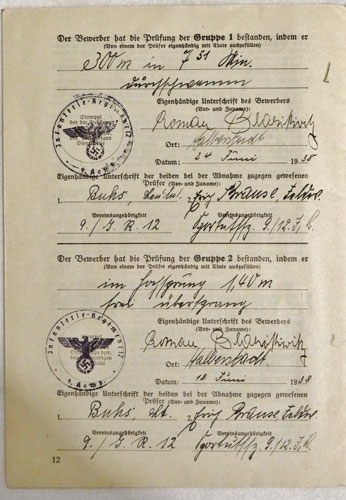 Der Bewerber hat die Prüfung der Gruppe 1 bestanden, indem er
(Von einem der Prüfer eigenhändig mit Tinte auszufüllen)
300 m in 7 51 Min.
durchschwamm
Eigenhändige Unterschrift des Bewerbers
(Vor- und Zuname):
Roman
Ort: Halberstadt
Datum: 24 Juni 1938
Eigenhändige Unterschrift der beiden bei der Abnahme zugegen gewesenen
Prüfer (Vor- und Zuname):
1. Buhs, 2. Krause, Feldw.
Vereinsangehörigkeit Vereinsangehörigkeit
9./I.R. 12 9./12. I.R.
Infanterie-Regiment 12
9. Komp.
Der Bewerber hat die Prüfung der Gruppe 2 bestanden, indem er
(Von einem der Prüfer eigenhändig mit Tinte auszufüllen)
im Hochsprung 1,40 m
frei übersprang
Eigenhändige Unterschrift des Bewerbers
(Vor- und Zuname):
Roman
Ort: Halberstadt
Datum: 10 Juni 1938
Eigenhändige Unterschrift der beiden bei der Abnahme zugegen gewesenen
Prüfer (Vor- und Zuname):
1. Buhs 2. Krause Feldw.
Vereinsangehörigkeit Vereinsangehörigkeit
9./I.R. 12 9./12. I.R.
Infanterie-Regiment 12
9. Komp.
12